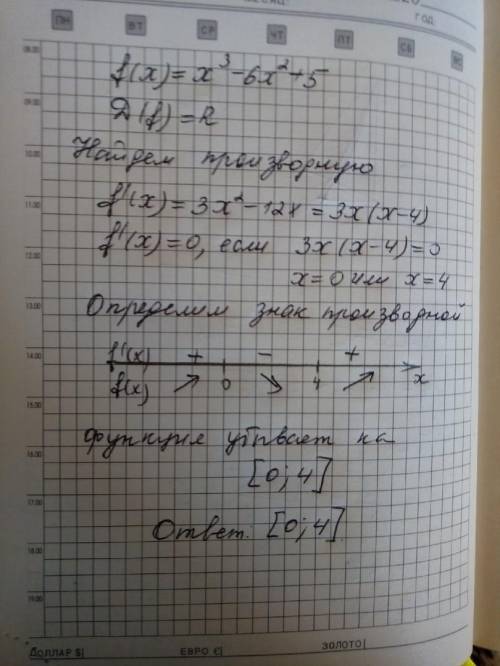 ГОД
ПН ВТ СР ЧТ ПТ СБ ВС
08.00
f(x) = x³-6x²+5
09.00
D(f) = R
10.00
Найдем производную
11.00
f'(x) = 3x²-12x = 3x(x-4)
f'(x)=0, если 3x(x-4)=0
12.00
x=0 или x=4
13.00
Определим знак производной
14.00
f'(x) + - +
f(x) ↗ 0 ↘ 4 ↗ x
15.00
16.00
функция убывает на
[0; 4]
17.00
Ответ: [0; 4]
18.00
19.00
ДОЛЛАР $| ЕВРО €| ЗОЛОТО|